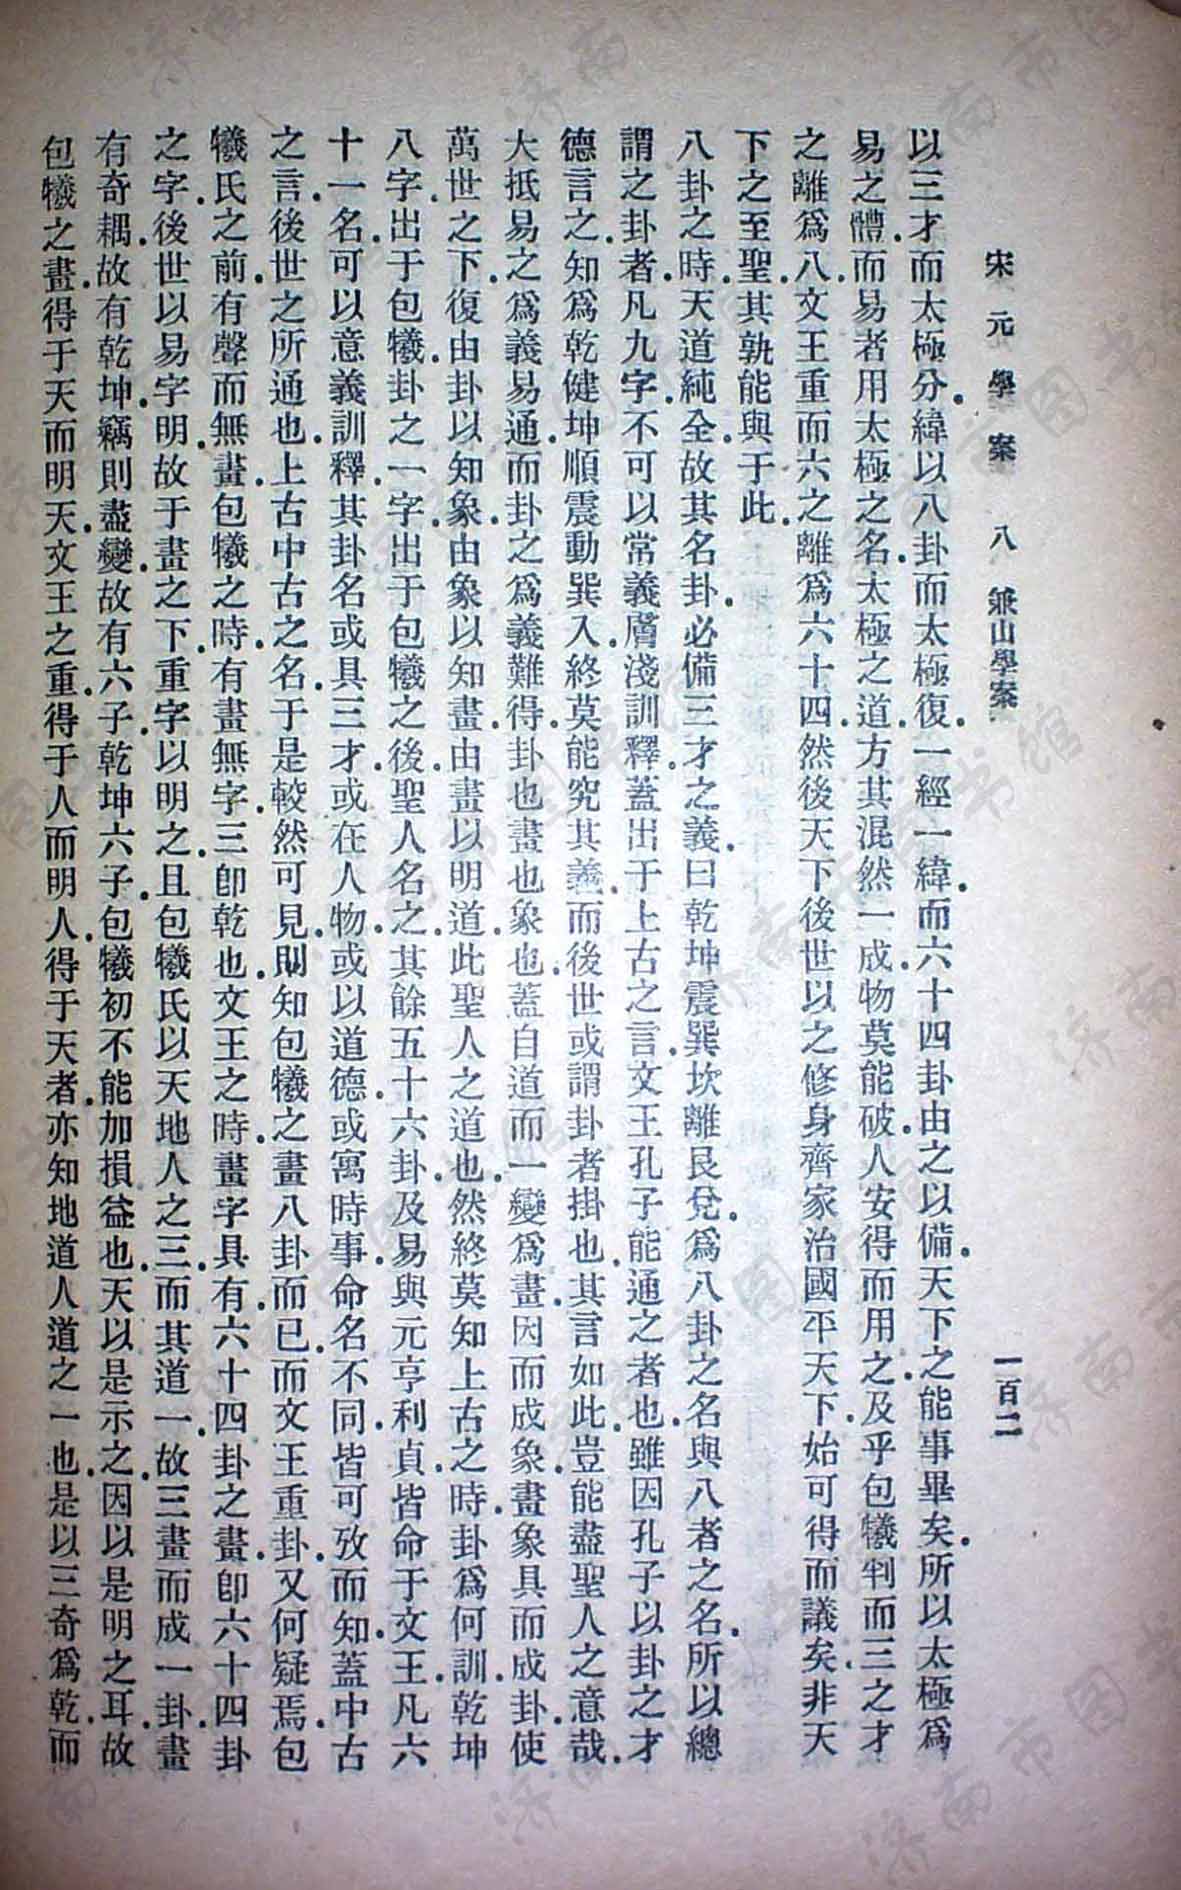 宋元學案 八 兼山學案 一百二
以三才而太極分緯以八卦而太極復一經一緯而六十四卦由之以備天下之能事畢矣所以太極爲
易之體而易者用太極之名太極之道方其混然一成物莫能破人安得而用之及乎包犧判而三之才
之離爲八文王重而六之離爲六十四然後天下後世以之修身齊家治國平天下始可得而議矣非天
下之至聖其孰能與于此
八卦之時天道純全故其名卦必備三才之義曰乾坤震巽坎離艮兌爲八卦之名與八者之名所以總
謂之卦者凡九字不可以常義膚淺訓釋蓋出于上古之言文王孔子能通之者也雖因孔子以卦之才
德言之知爲乾健坤順震動巽入終莫能究其義而後世或謂卦者掛也其言如此豈能盡聖人之意哉
大抵易之爲義易通而卦之爲義難得卦也畫也象也蓋自道而一變爲畫因而成象畫象具而成卦使
萬世之下復由卦以知象由象以知畫由畫以明道此聖人之道也然終莫知上古之時卦爲何訓乾坤
八字出于包犧卦之一字出于包犧之後聖人名之其餘五十六卦及易與元亨利貞皆命于文王凡六
十一名可以意義訓釋其卦名或具三才或在人物或以道德或寓時事命名不同皆可攷而知蓋中古
之言後世之所通也上古中古之名于是較然可見則知包犧之畫八卦而已而文王重卦又何疑焉包
犧氏之前有聲而無畫包犧之時有畫無字三卽乾也文王之時畫字具有六十四卦之畫卽六十四卦
之字後世以易字明故于畫之下重字以明之且包犧氏以天地人之三而其道一故三畫而成一卦畫
有奇耦故有乾坤竊則盡變故有六子乾坤六子包犧初不能加損益也天以是示之因以是明之耳故
包犧之畫得于天而明天文王之重得于人而明人得于天者亦知地道人道之一也是以三奇爲乾而